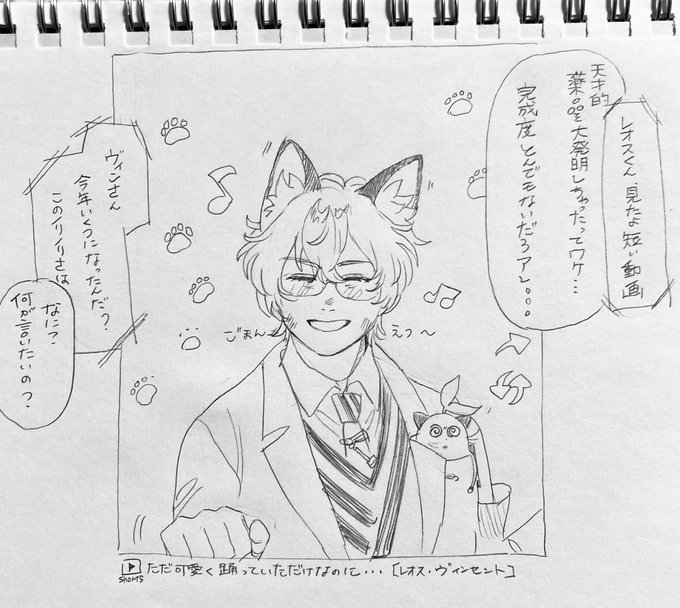 レオスくん 見たよ短い動画
天才的
薬品を大発明しちゃったってワケ…
完成度とんでもないだろアレ。。。
ヴィンさん
今年いくつになったんだ？
このイリイリさは
なに？
何が言いたいのっ？
ごまん
えっ〜
shorts
ただ可愛く踊っていただけなのに・・・[レオス・ヴィンセント]